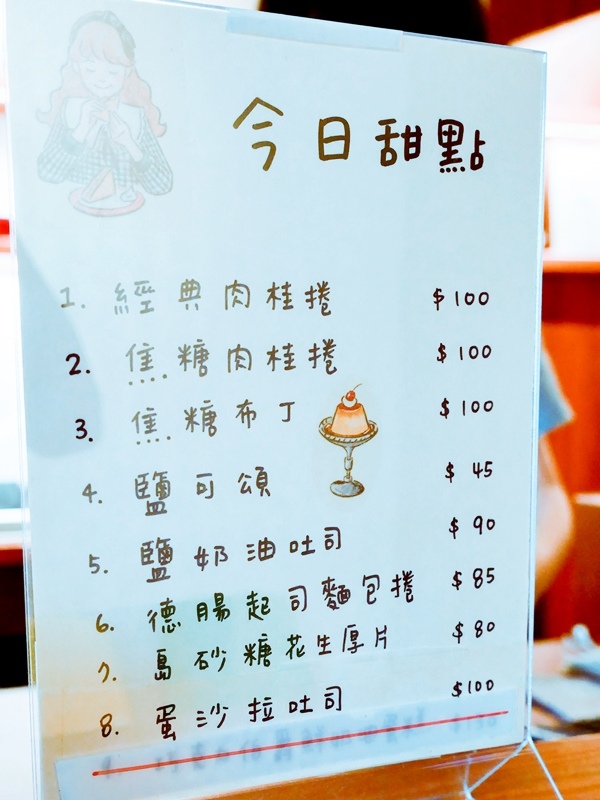 今日甜點
1. 經典肉桂捲 $100
2. 焦糖肉桂捲 $100
3. 焦糖布丁 $100
4. 鹽可頌 $45
5. 鹽奶油吐司 $90
6. 德腸起司麵包捲 $85
7. 島砂糖花生厚片 $80
8. 蛋沙拉吐司 $100